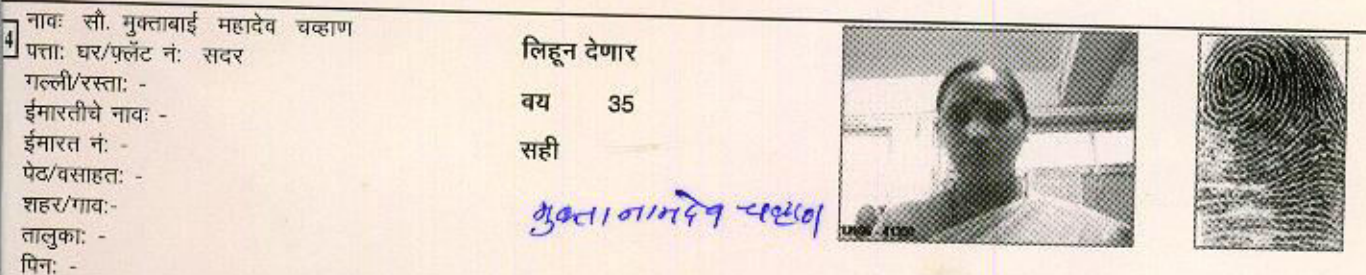 4
नावः सौ. मुक्ताबाई महादेव चव्हाण
पत्ता: घर/फ़्लॅट नं: सदर
गल्ली/रस्ता: -
ईमारतीचे नावः -
ईमारत नं: -
पेठ/वसाहत: -
शहर/गाव:-
तालुका: -
पिन: -
लिहून देणार
वय 35
सही
मुक्ता नामदेव चव्हाण